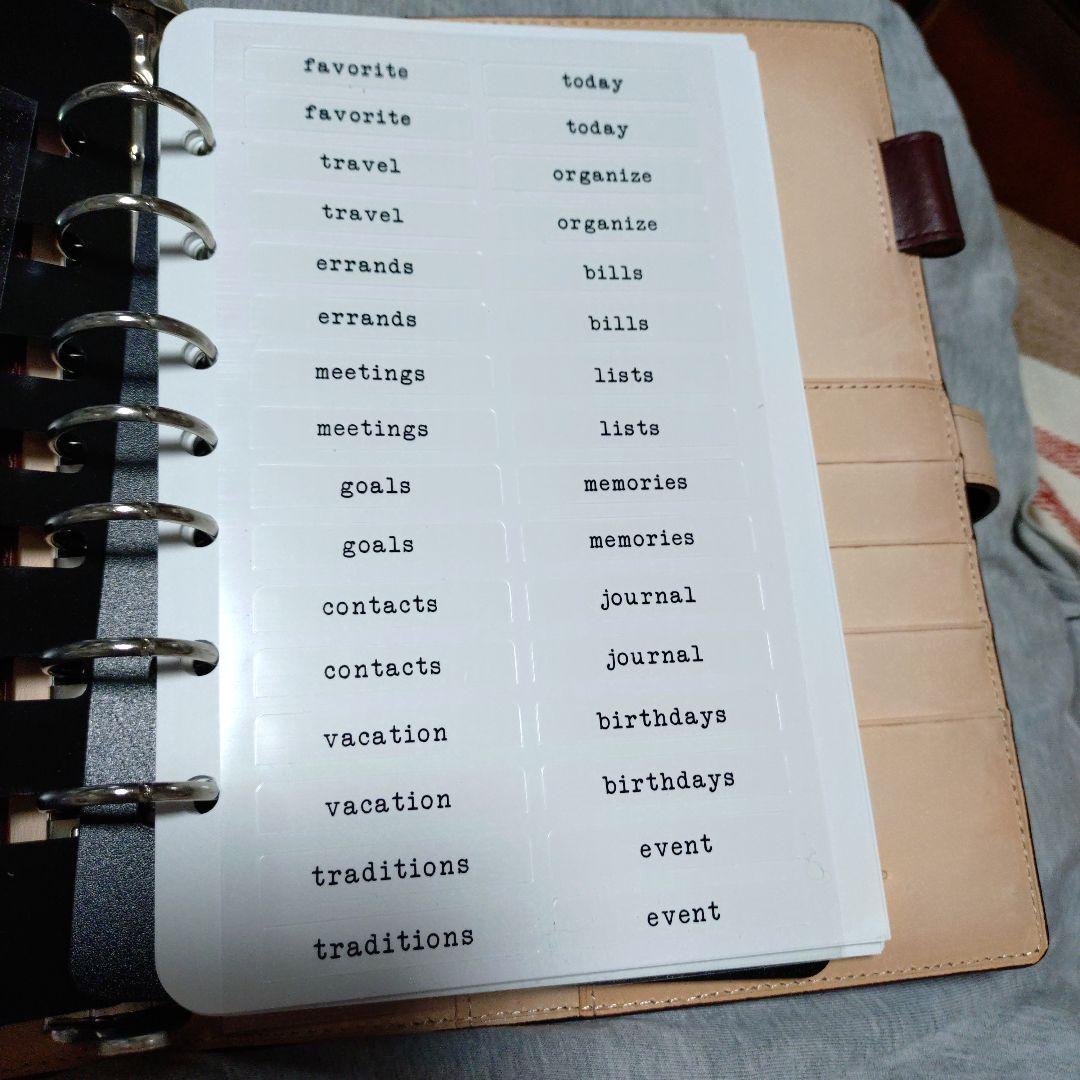 favorite today
favorite today
travel organize
travel organize
errands bills
errands bills
meetings lists
meetings lists
goals memories
goals memories
contacts journal
contacts journal
vacation birthdays
vacation birthdays
traditions event
traditions event